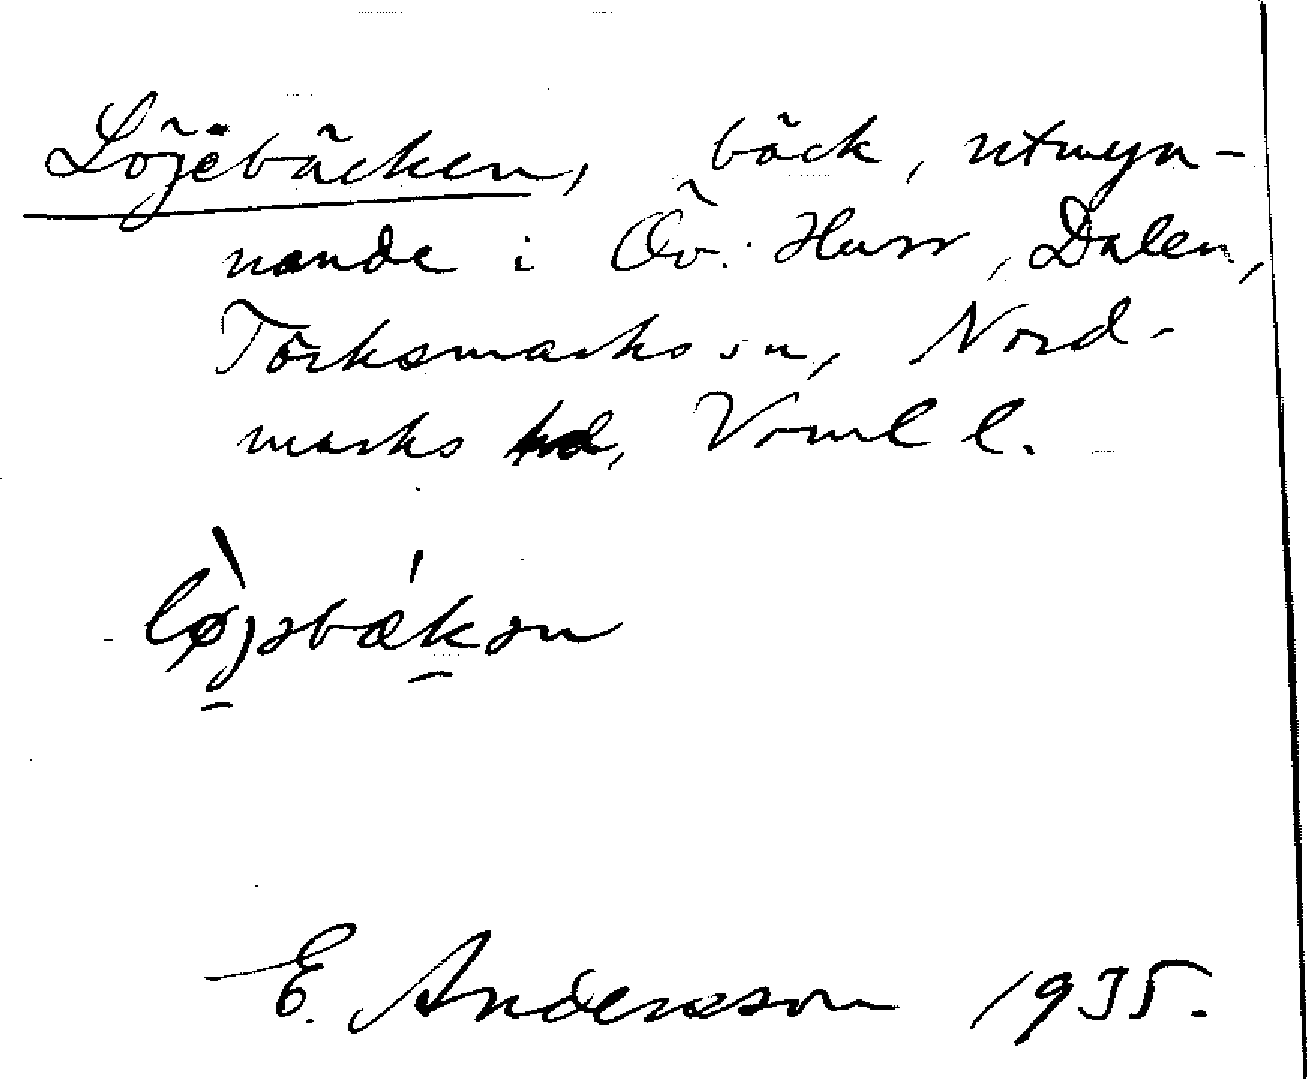 Löjebäcken, bäck, utmyn-
nande i Öv. Harr, Dalen,
Törksmarks sn, Nord-
marks hd, Värml l.
lø̀jəbǽkən
E. Andersson 1935.